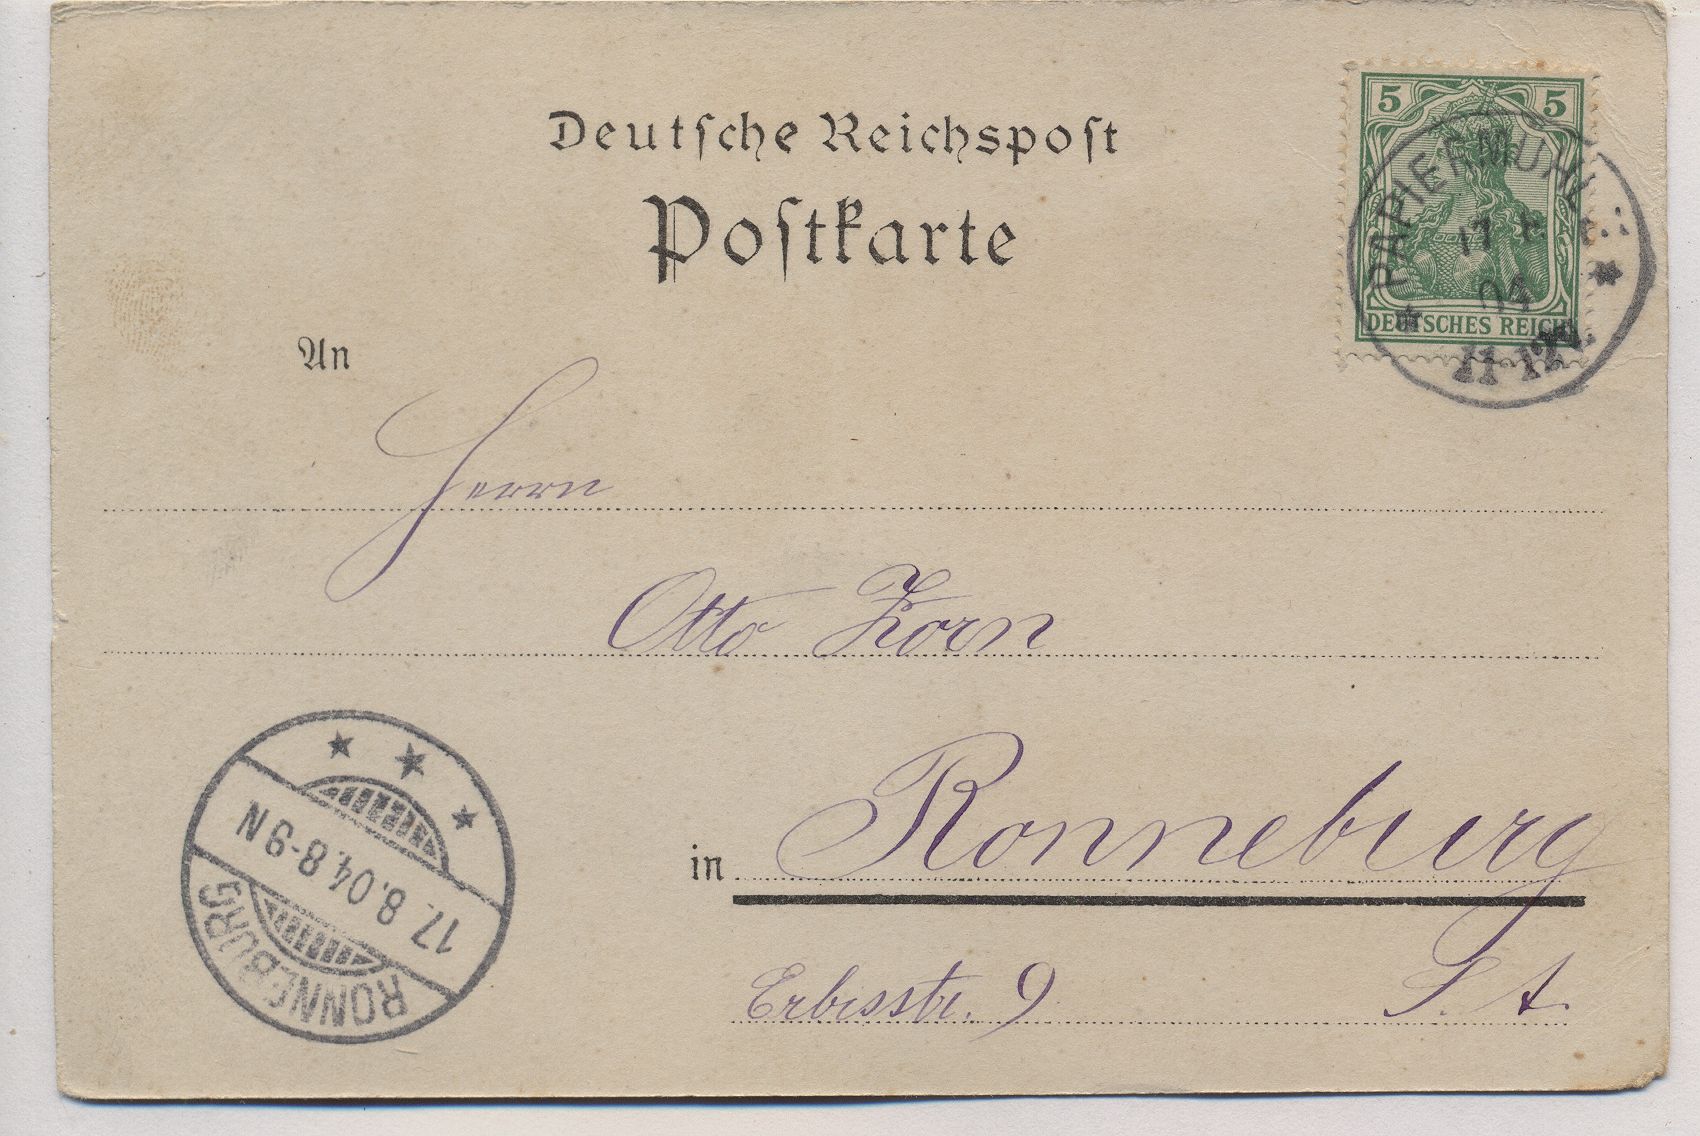 Deutsche Reichspost
Postkarte
5 5
DEUTSCHES REICH
PAPIERMÜHLE
17 8
04
11-12V
An
Herrn
Otto Zorn
in Ronneburg
Erbisstr. 9 S. A.
RONNEBURG
17. 8.04. 8-9 N